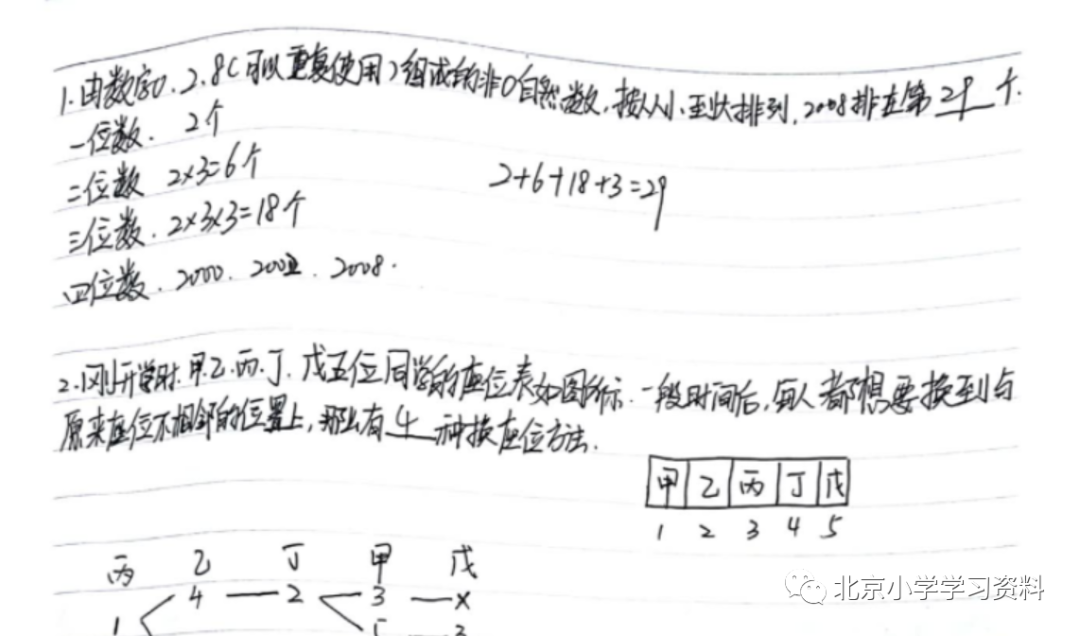 1.由数字0.2.8(可以重复使用)组成的非0自然数,按从小至大排列,2008排在第29个.
一位数. 2个
二位数 2×3=6个
2+6+18+3=29
三位数. 2×3×3=18个
四位数. 2000. 2002. 2008.
2.刚开学时.甲.乙.丙.丁.戊五位同学的座位表如图所示.一段时间后,每人都想要换到与
原来座位不相邻的位置上,那么有4种换座位方法.
甲 乙 丙 丁 戊
1 2 3 4 5
丙 乙 丁 甲 戊
4 — 2 3 — ×
1 5 3
北京小学学习资料